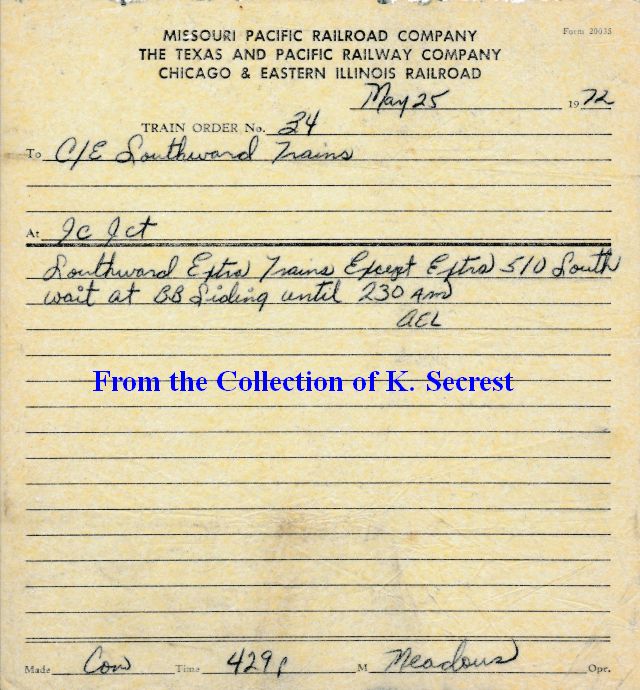 Form 20035
MISSOURI PACIFIC RAILROAD COMPANY
THE TEXAS AND PACIFIC RAILWAY COMPANY
CHICAGO & EASTERN ILLINOIS RAILROAD
May 25 1972
TRAIN ORDER No. 34
To C/E Southward Trains
At JC Jct
Southward Extra Trains Except Extra 510 South
wait at BB Siding until 230 am
AEL
From the Collection of K. Secrest
Made Com Time 429p M Meadows Opr.